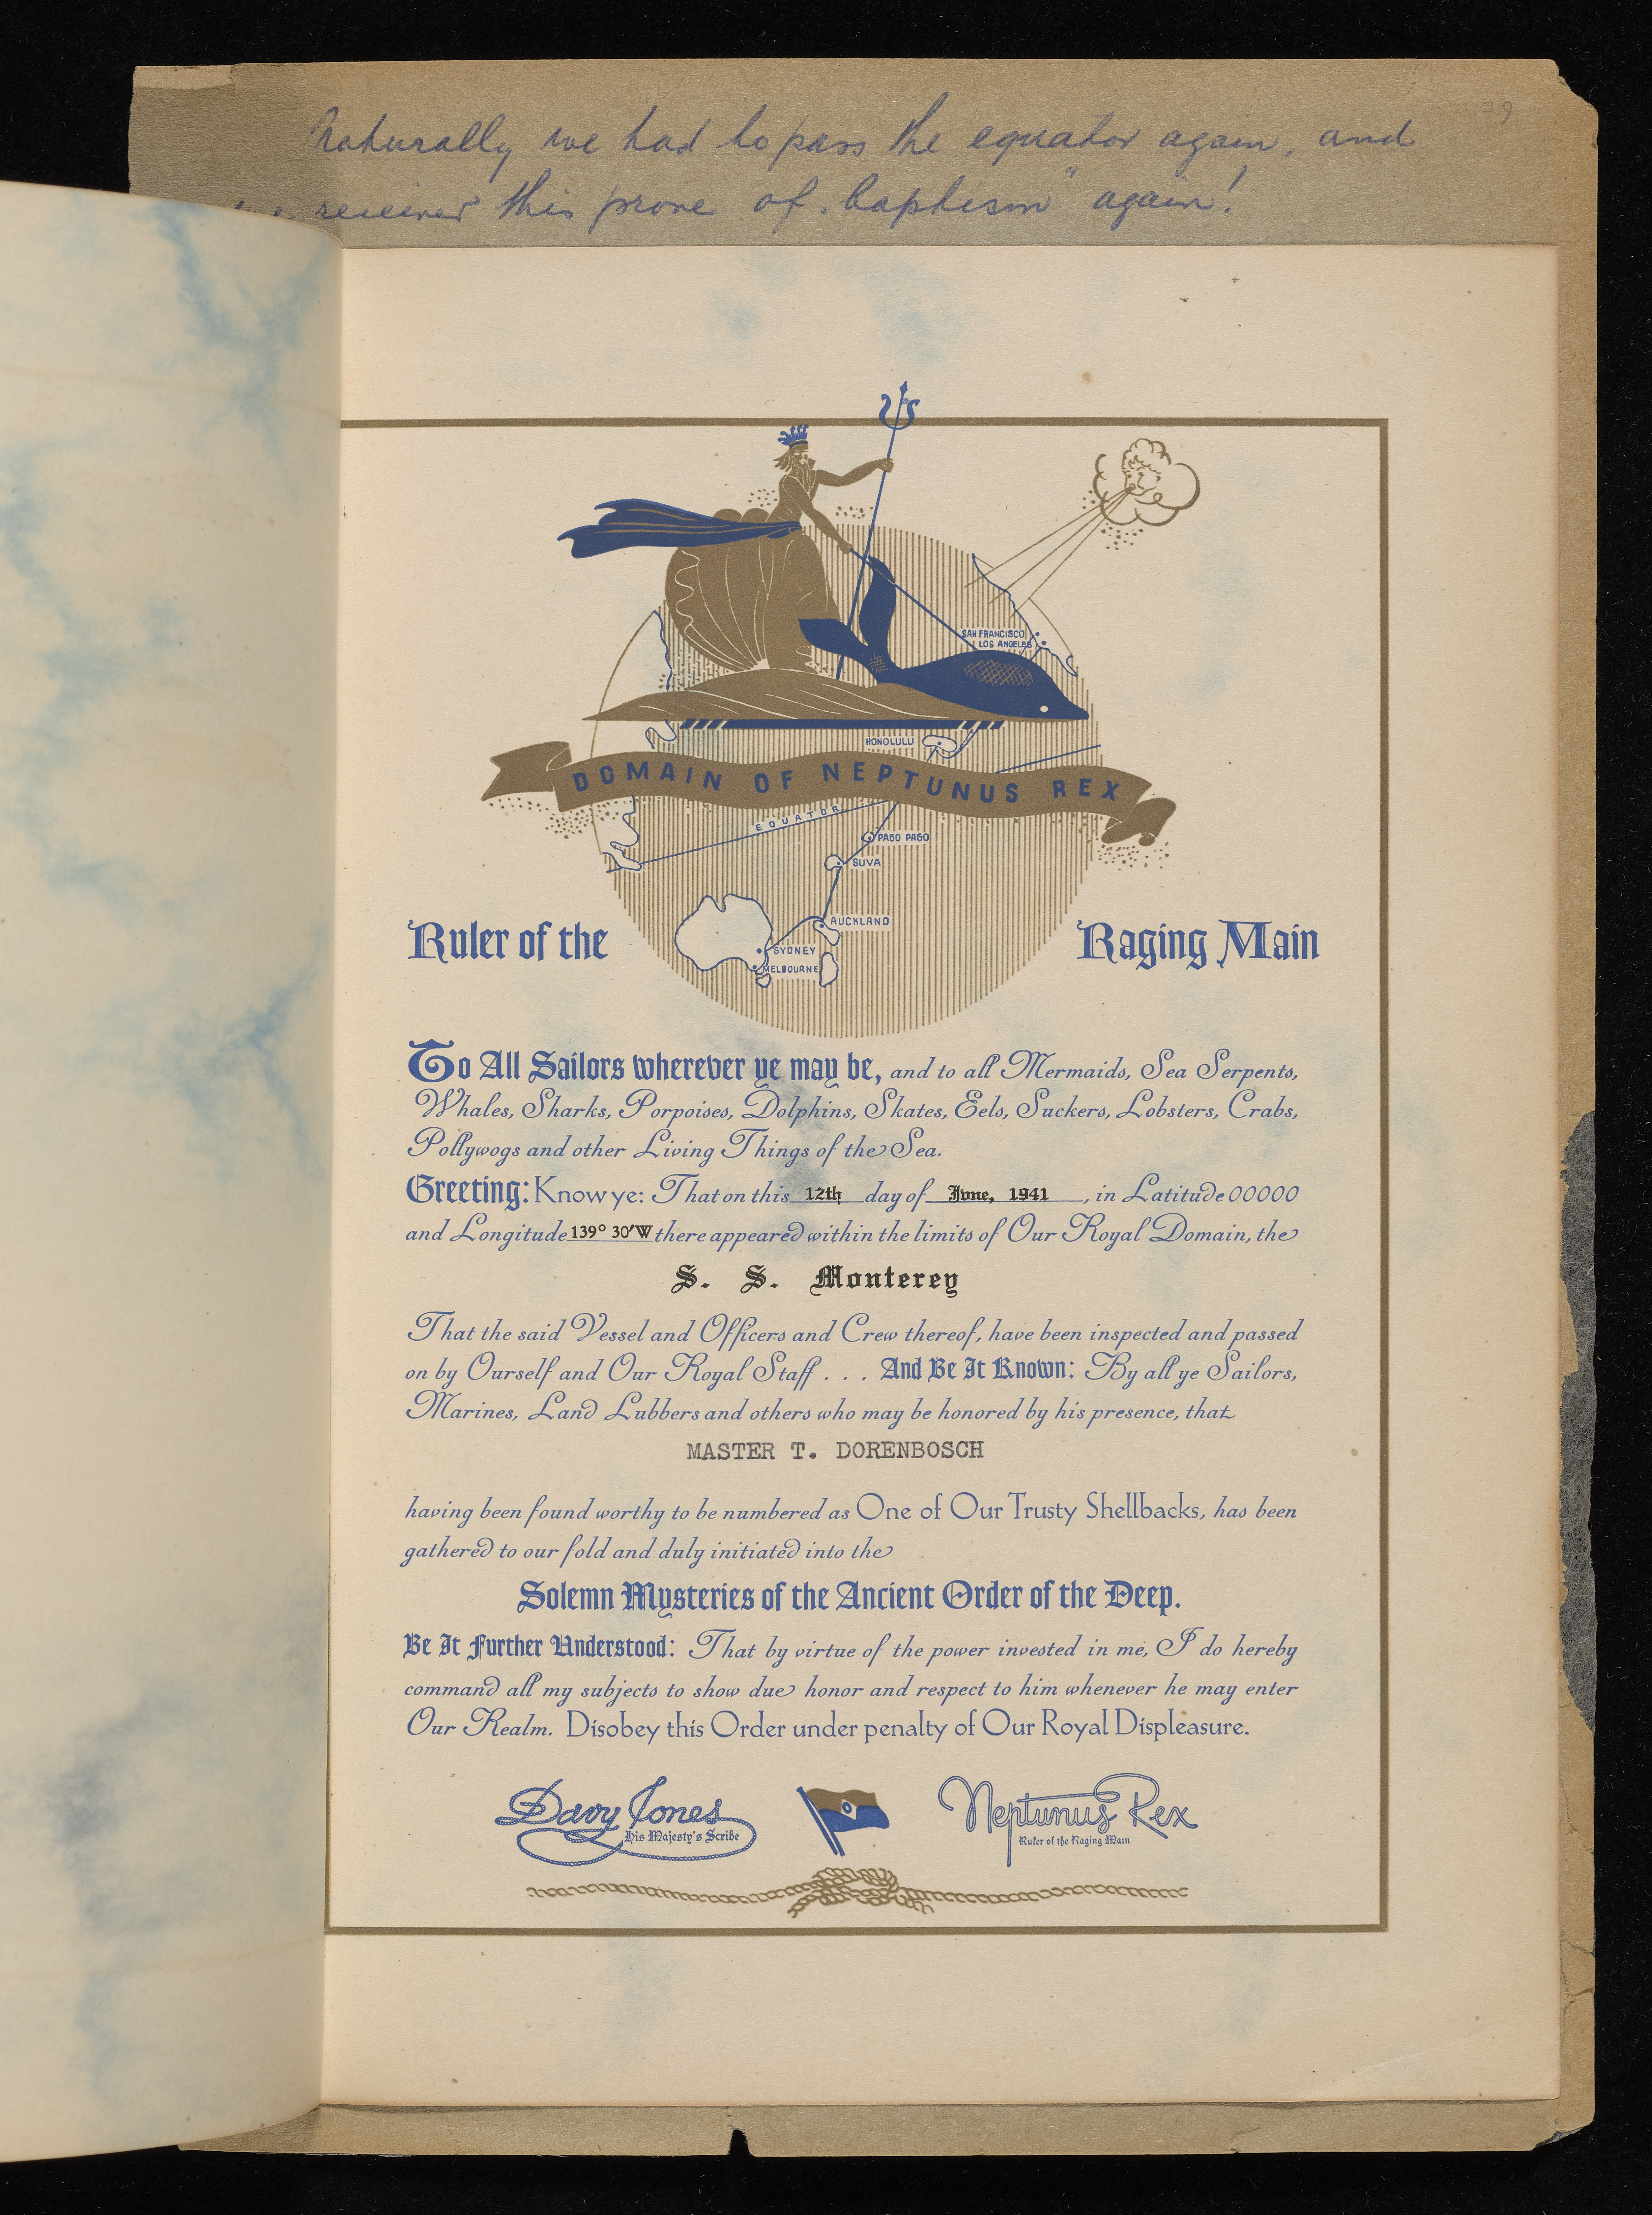 79
Naturally we had to pass the equator again, and
we received this prove of "baptism" again!
SAN FRANCISCO
LOS ANGELES
HONOLULU
DOMAIN OF NEPTUNUS REX
EQUATOR
PAGO PAGO
SUVA
AUCKLAND
SYDNEY
MELBOURNE
Ruler of the Raging Main
To All Sailors wherever ye may be, and to all Mermaids, Sea Serpents,
Whales, Sharks, Porpoises, Dolphins, Skates, Eels, Suckers, Lobsters, Crabs,
Pollywogs and other Living Things of the Sea.
Greeting: Know ye: That on this 12th day of June, 1941, in Latitude 00000
and Longitude 139° 30'W there appeared within the limits of Our Royal Domain, the
S. S. Monterey
That the said Vessel and Officers and Crew thereof, have been inspected and passed
on by Ourself and Our Royal Staff . . . And Be It Known: By all ye Sailors,
Marines, Land Lubbers and others who may be honored by his presence, that
MASTER T. DORENBOSCH
having been found worthy to be numbered as One of Our Trusty Shellbacks, has been
gathered to our fold and duly initiated into the
Solemn Mysteries of the Ancient Order of the Deep.
Be It Further Understood: That by virtue of the power invested in me, I do hereby
command all my subjects to show due honor and respect to him whenever he may enter
Our Realm. Disobey this Order under penalty of Our Royal Displeasure.
Davy Jones Neptunus Rex
His Majesty's Scribe Ruler of the Raging Main